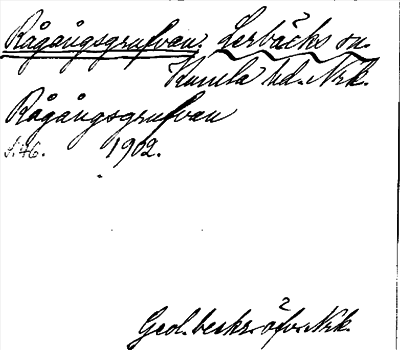 Rågångsgrufvan. Lerbäcks sn.
Kumla hd. Nrk.
Rågångsgrufvan
s. 46. 1902.
Geol. beskr. öfv. Nrk.